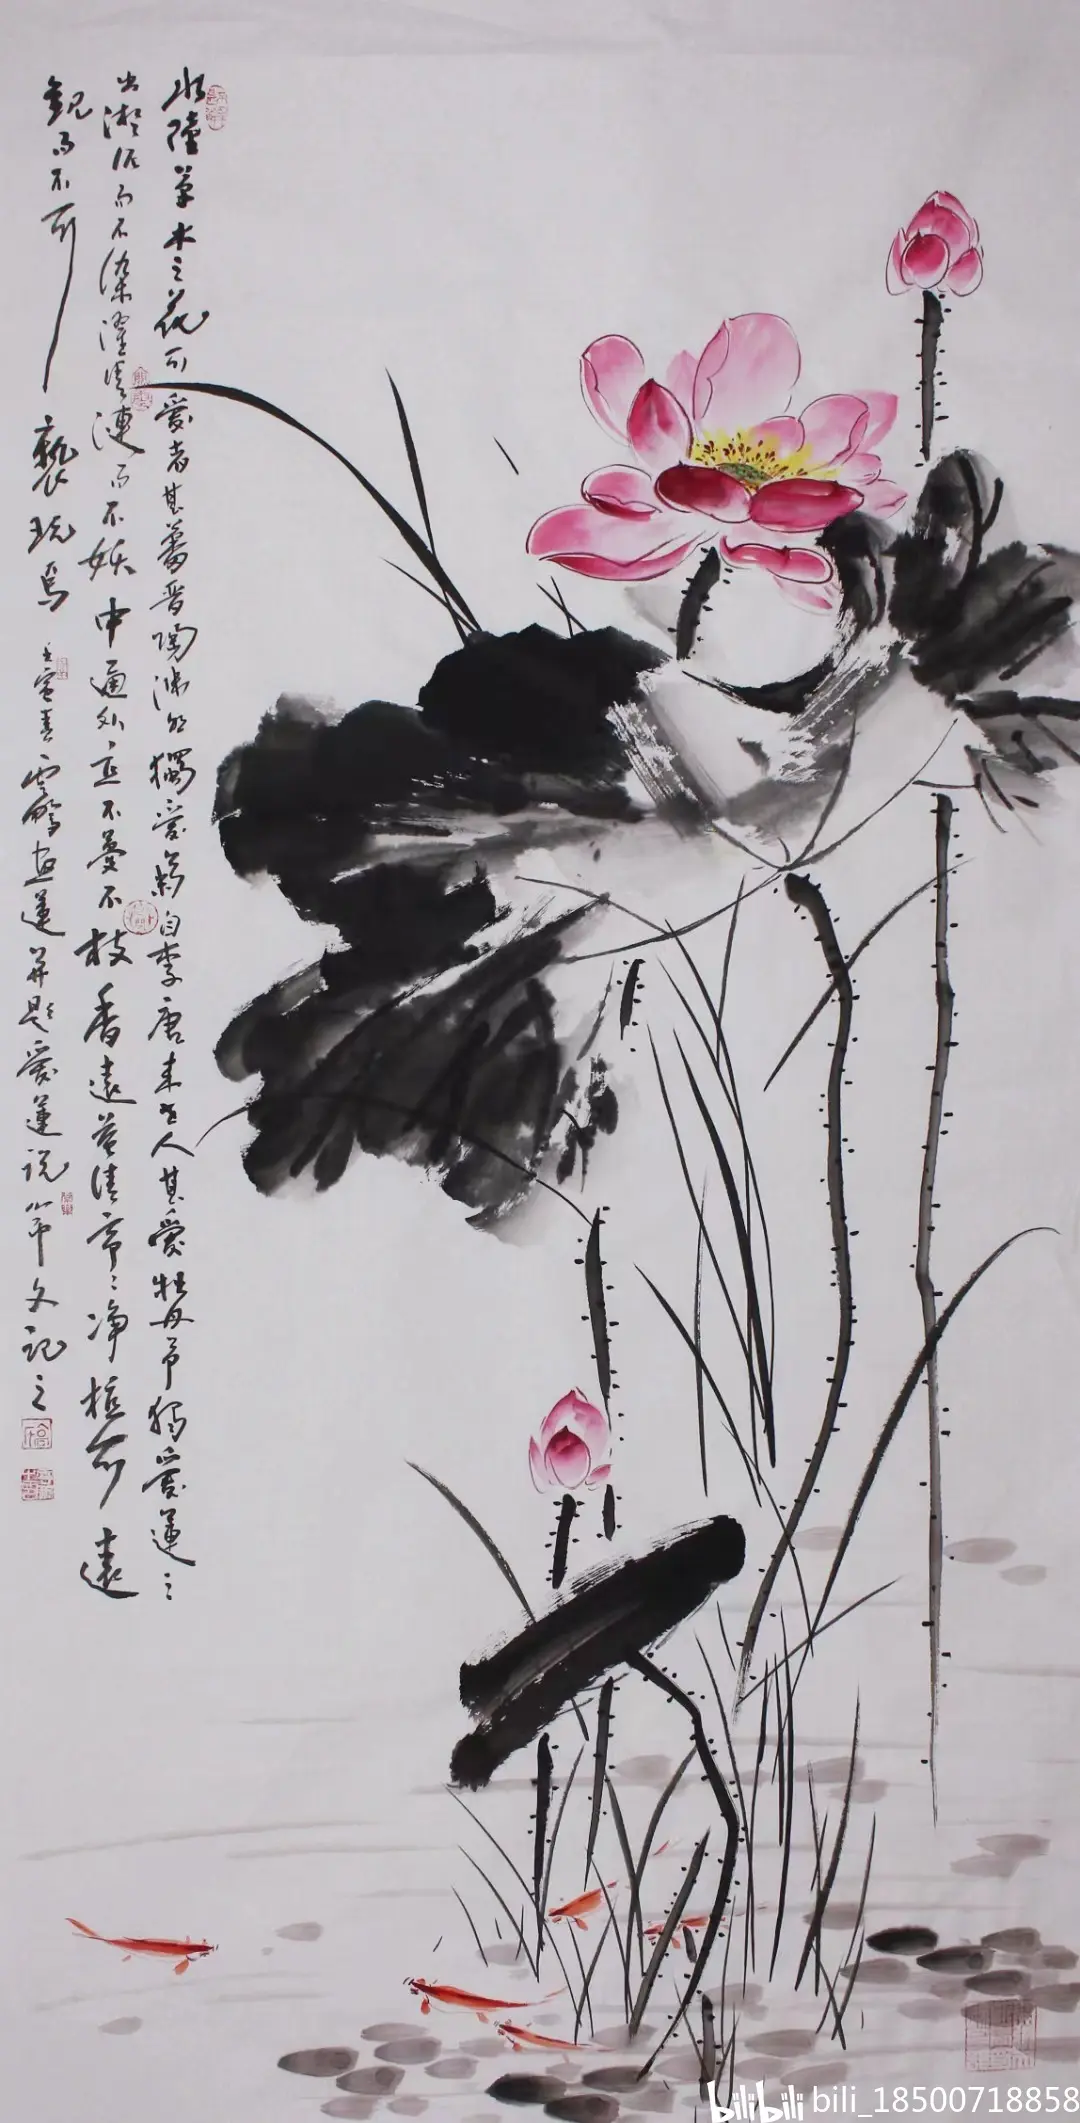 水陆草木之花可爱者甚蕃晋陶渊明独爱菊自李唐来世人甚爱牡丹予独爱莲之
出淤泥而不染濯清涟而不妖中通外直不蔓不枝香远益清亭亭净植可远
观而不可亵玩焉
画莲并题爱莲说 文记之
bilibili bili_18500718858